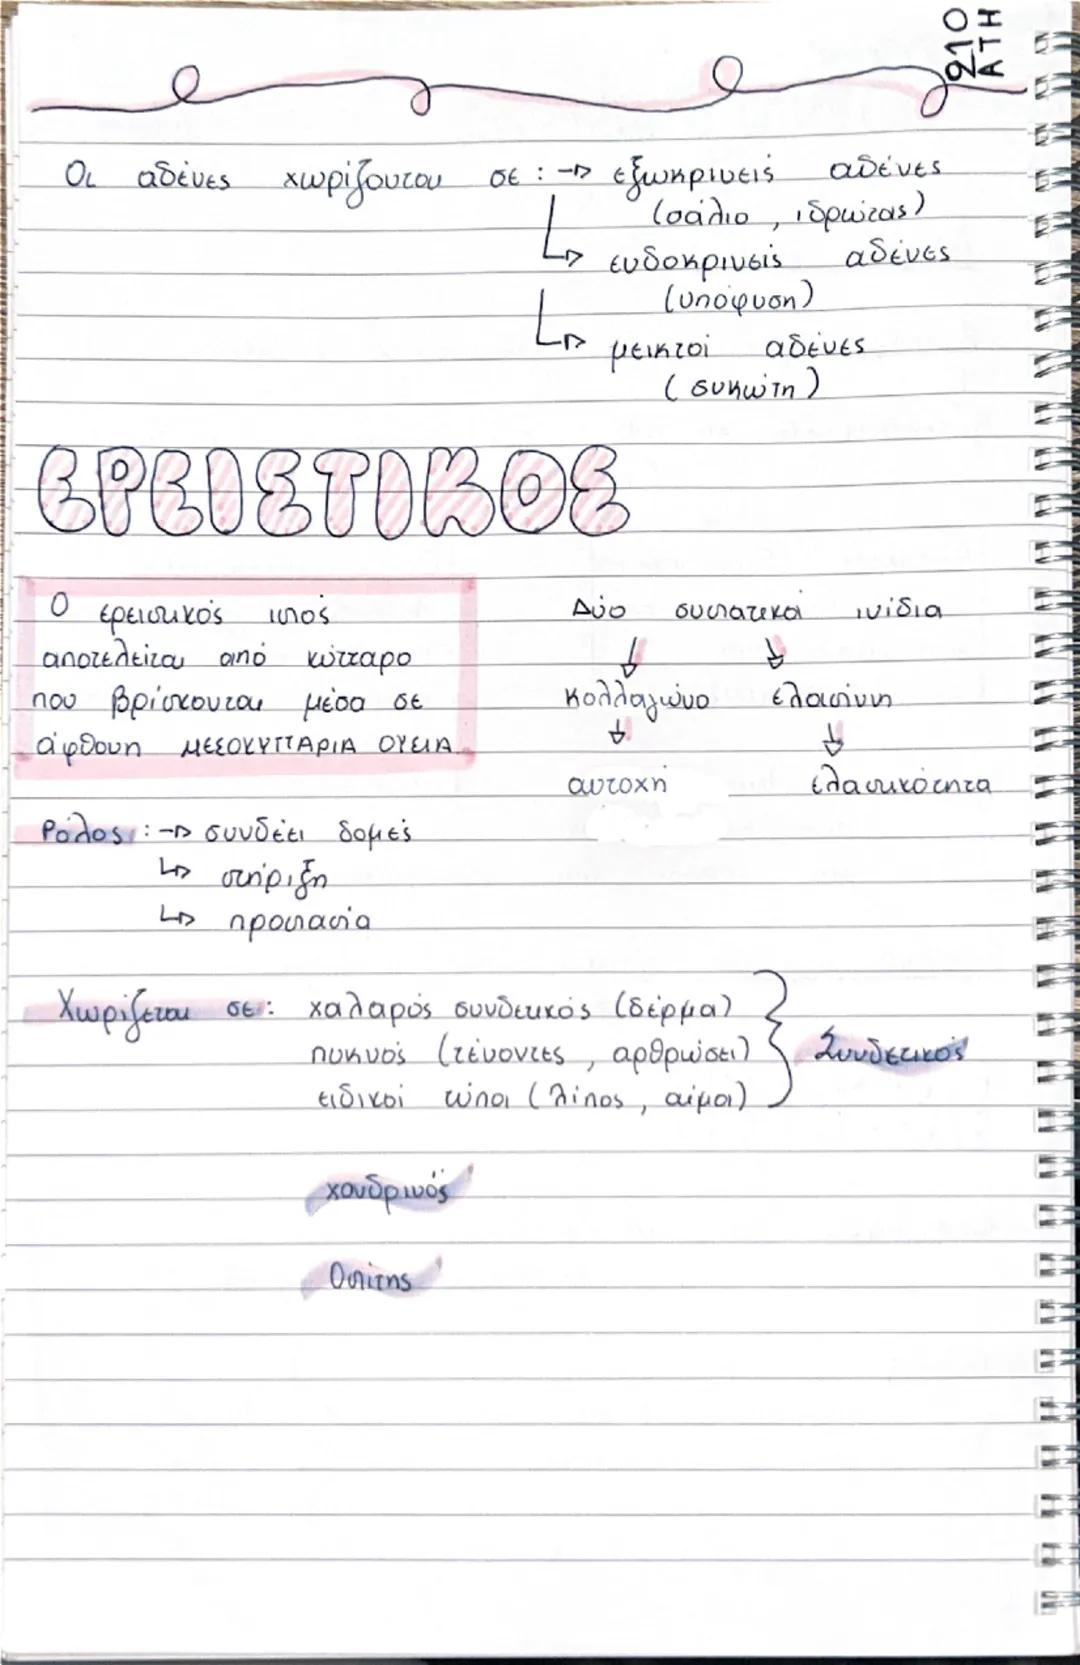 210
ΑΤΗ
Οι αδένες χωρίζονται σε : → εξωκρινείς αδένες
(σάλιο , ιδρώτας)
↳ ενδοκρινείς αδένες
(υπόφυση)
↳ μεικτοί αδένες
(συκώτη)
ΕΡΕΙΣΤΙΚΟΣ
Ο ερειστικός ιστός
αποτελείται από κύτταρο
που βρίσκονται μέσα σε
άφθονη ΜΕΣΟΚΥΤΤΑΡΙΑ ΟΥΣΙΑ
Δύο συστατικά ινίδια
↓ ↓
κολλαγόνο ελαστίνη
↓ ↓
αντοχή ελαστικότητα
Ρόλος : → συνδέει δομές
↳ στήριξη
↳ προστασία
Χωρίζεται σε : χαλαρός συνδετικός (δέρμα)
πυκνός (τένοντες , αρθρώσει) } Συνδετικός
ειδικοί τύποι (λίπος , αίμα)
χονδρινός
Οστίτης